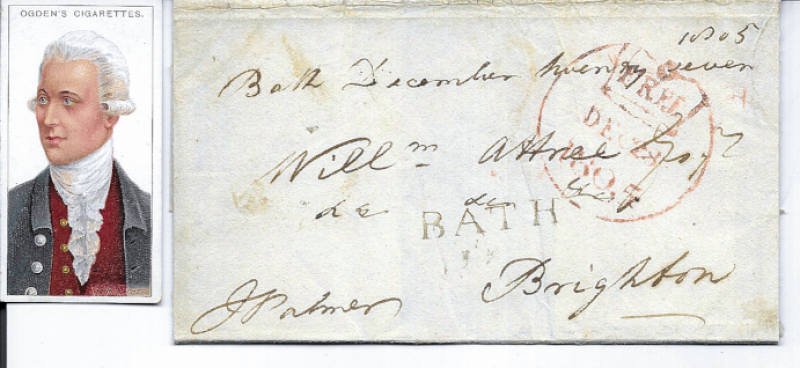 OGDEN'S CIGARETTES.
1805
Bath December twenty seven
FREE
DE
1805
Willm Attree Esqr
BATH
Brighton
J Palmer